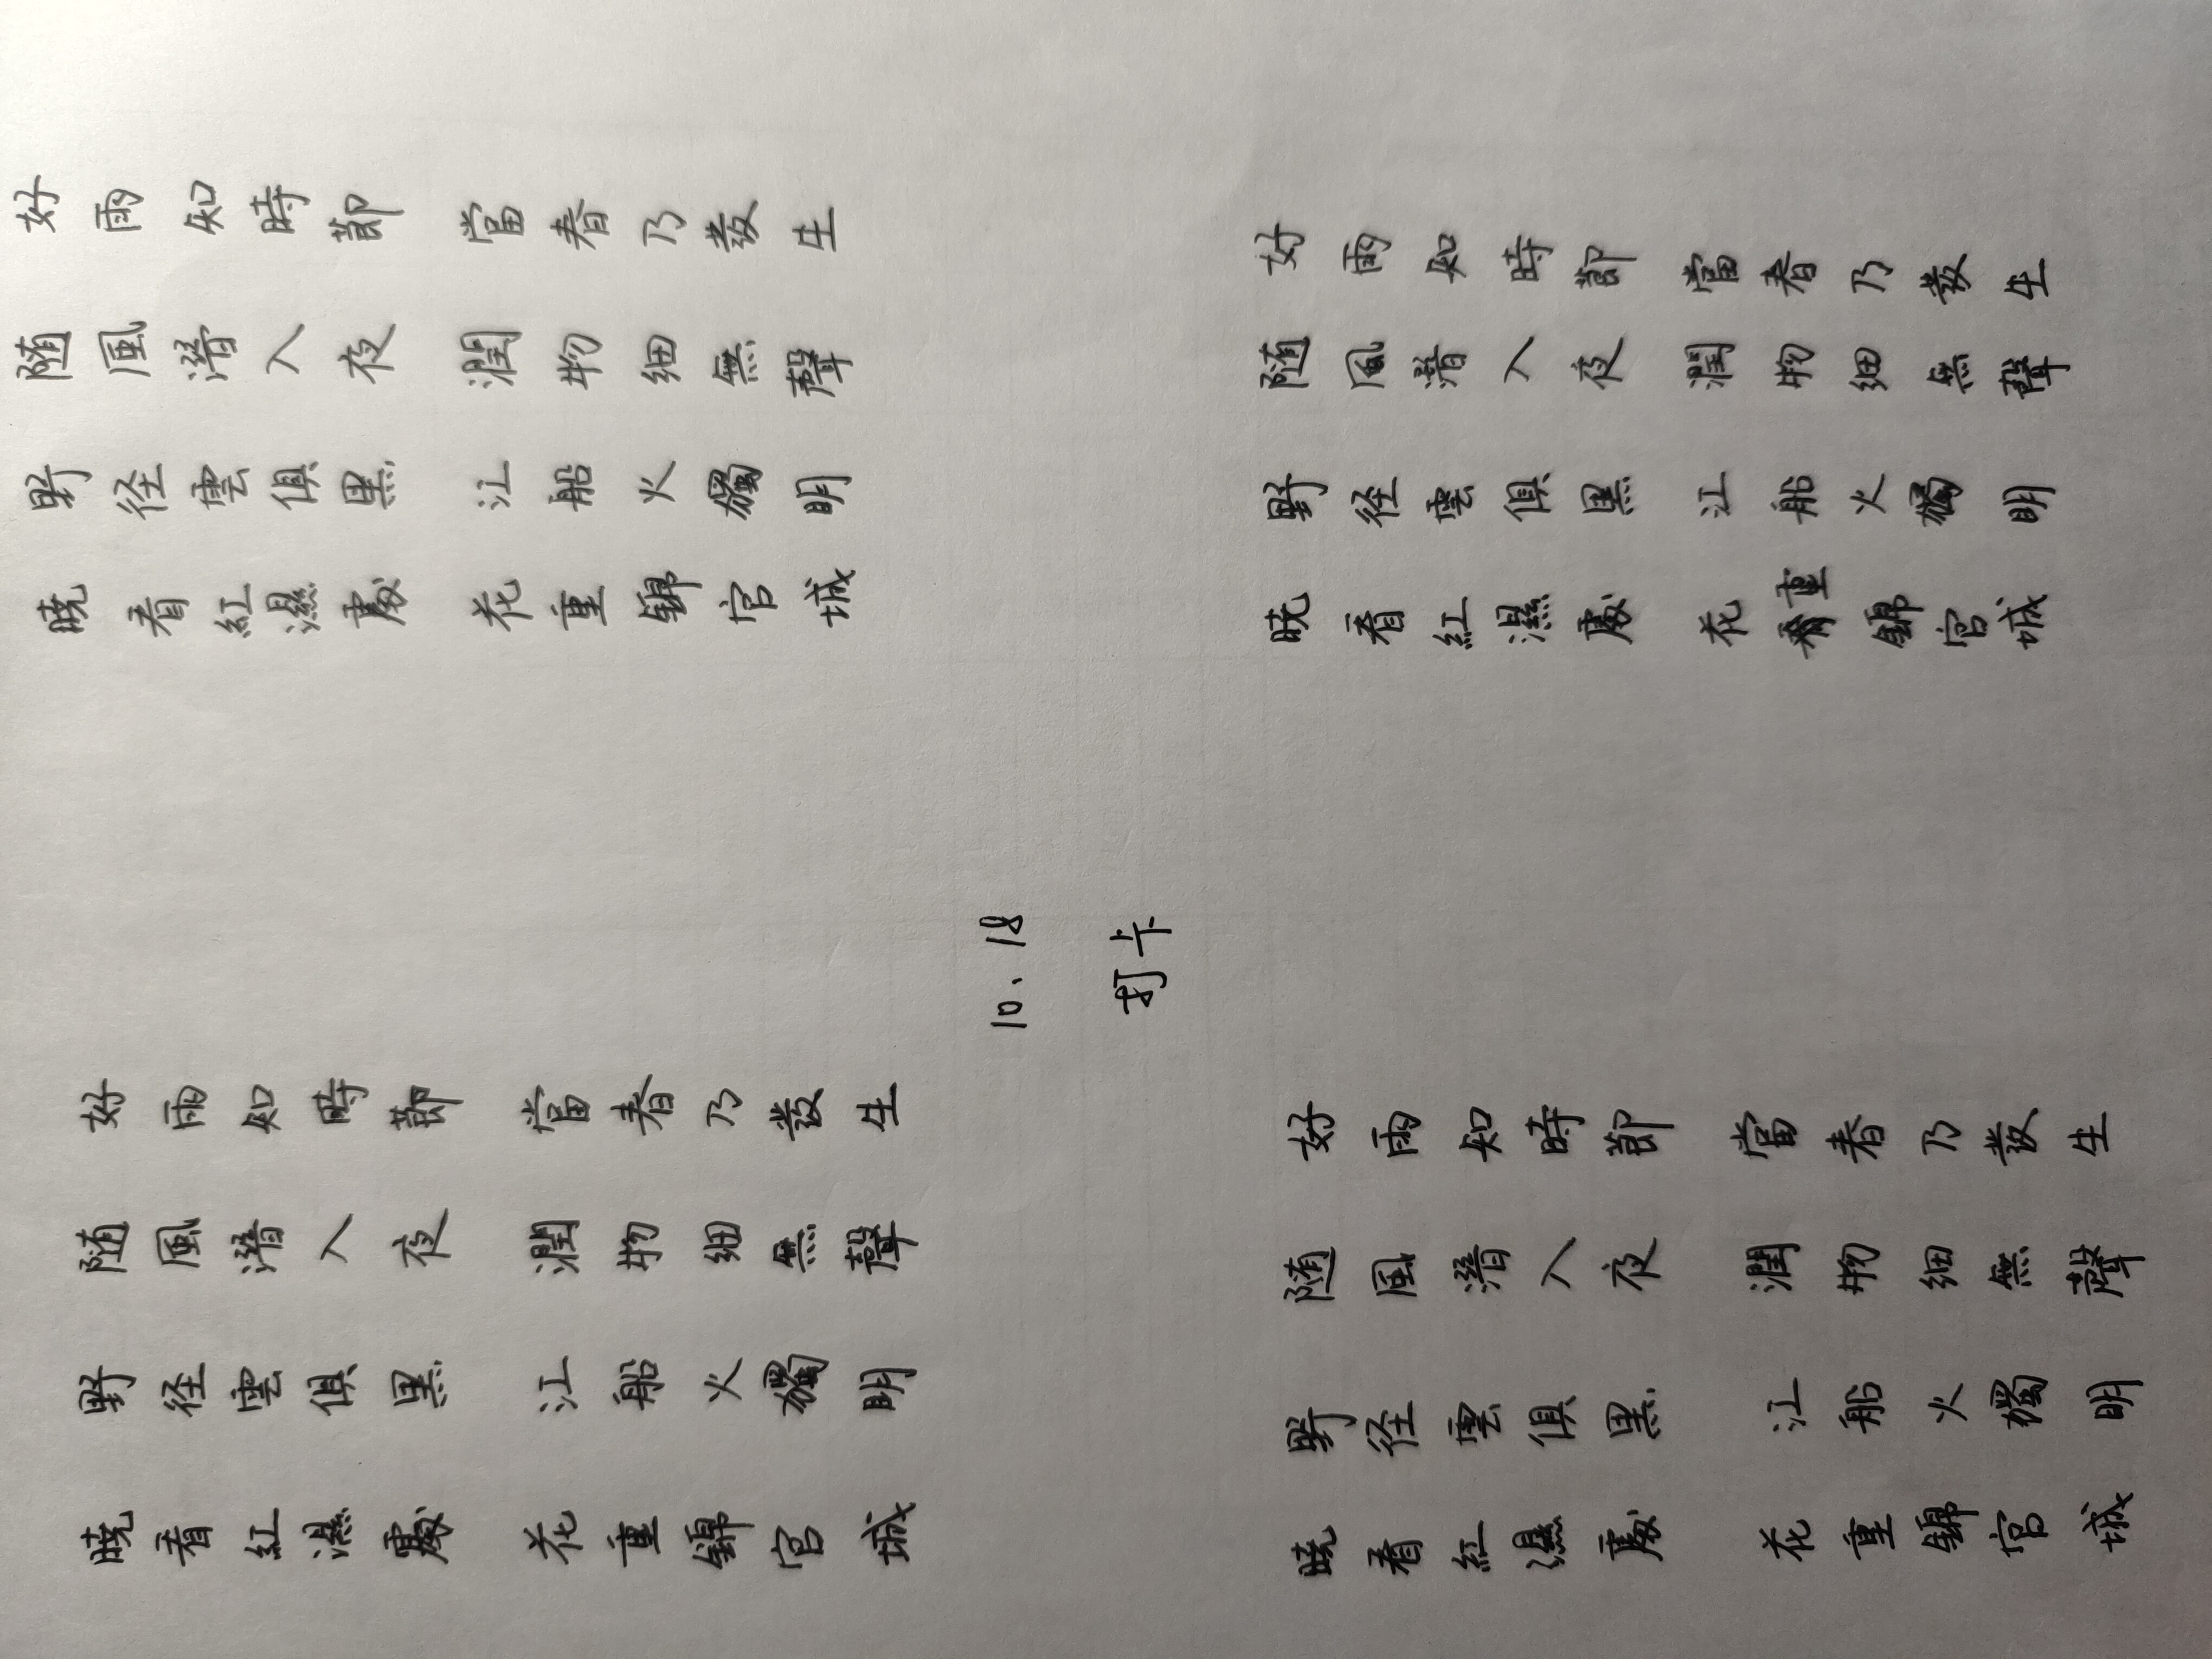 好雨知時節 當春乃發生
随風潛入夜 潤物細無聲
野径雲俱黑 江船火獨明
曉看紅濕處 花重錦官城
好雨知時節 當春乃發生
随風潛入夜 潤物細無聲
野径雲俱黑 江船火獨明
曉看紅濕處 花重錦官城
10、18
打卡
好雨知時節 當春乃發生
随風潛入夜 潤物細無聲
野径雲俱黑 江船火獨明
曉看紅濕處 花重錦官城
好雨知時節 當春乃發生
随風潛入夜 潤物細無聲
野径雲俱黑 江船火獨明
曉看紅濕處 花重錦官城